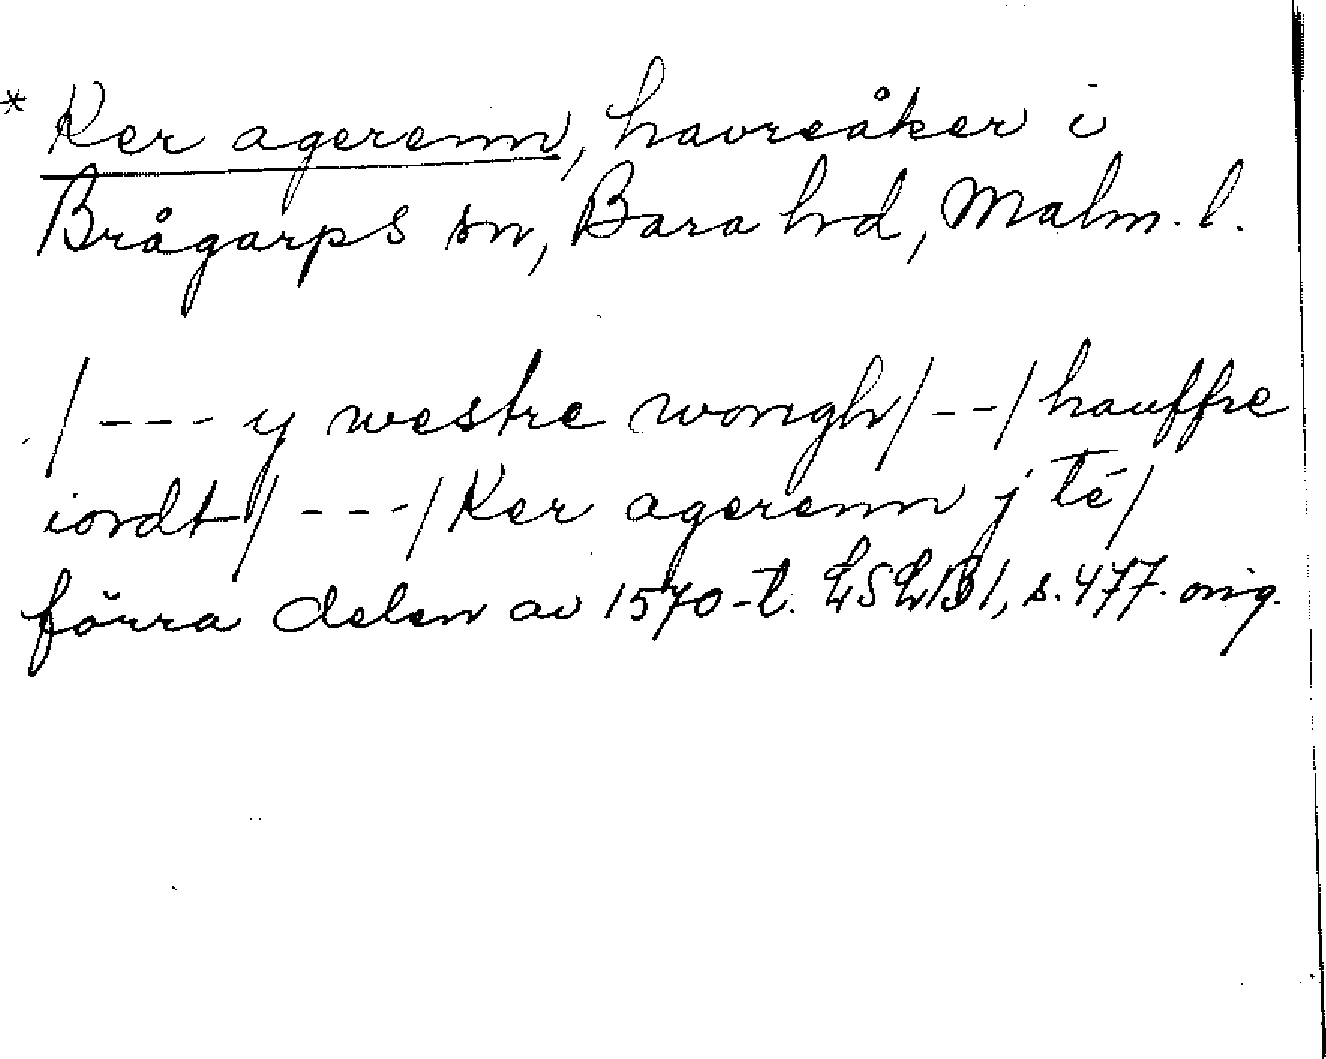 * Ker agerenn, havreåker i
Brågarps sn, Bara hd, Malm. l.
/--- y westre wongh/--/hauffre
iordt/---/Ker agerenn j Té/
förra delen av 1570-t. LSLB1, s. 477. orig.